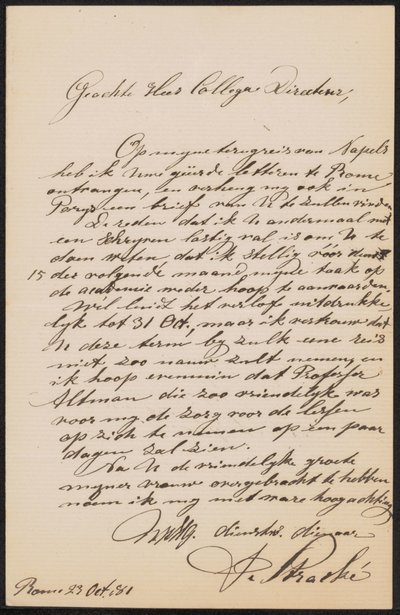 Geachte Heer Collega Directeur,
Op myne terugreis van Napels
heb ik Uwe geëerde letteren te Rome
ontvangen, en verheug my ook in
Parys een brief van U te zullen vinden
De reden dat ik U andermaal met
een schryven lastig val is om U te
doen weten, dat ik stellig vóór den
15 der volgende maand myne taak op
de academie weder hoop te aanvaarden.
Wel luidt het verlof uitdrukke
lyk tot 31 Oct, maar ik vertrouw dat
U deze term by zulk eene reis
niet zoo nauw zult nemen, en
ik hoop evenmin dat Professor
Altman die zoo vriendelyk was
voor my de zorg voor de lessen
op zich te nemen op een paar
dagen zal zien.
Na U de vriendelyke groete
myner vrouw overgebracht te hebben
noem ik my met ware hoogachting
UwEdg. dienstw. dienaar
Stracké
Rome 23 Oct. 81